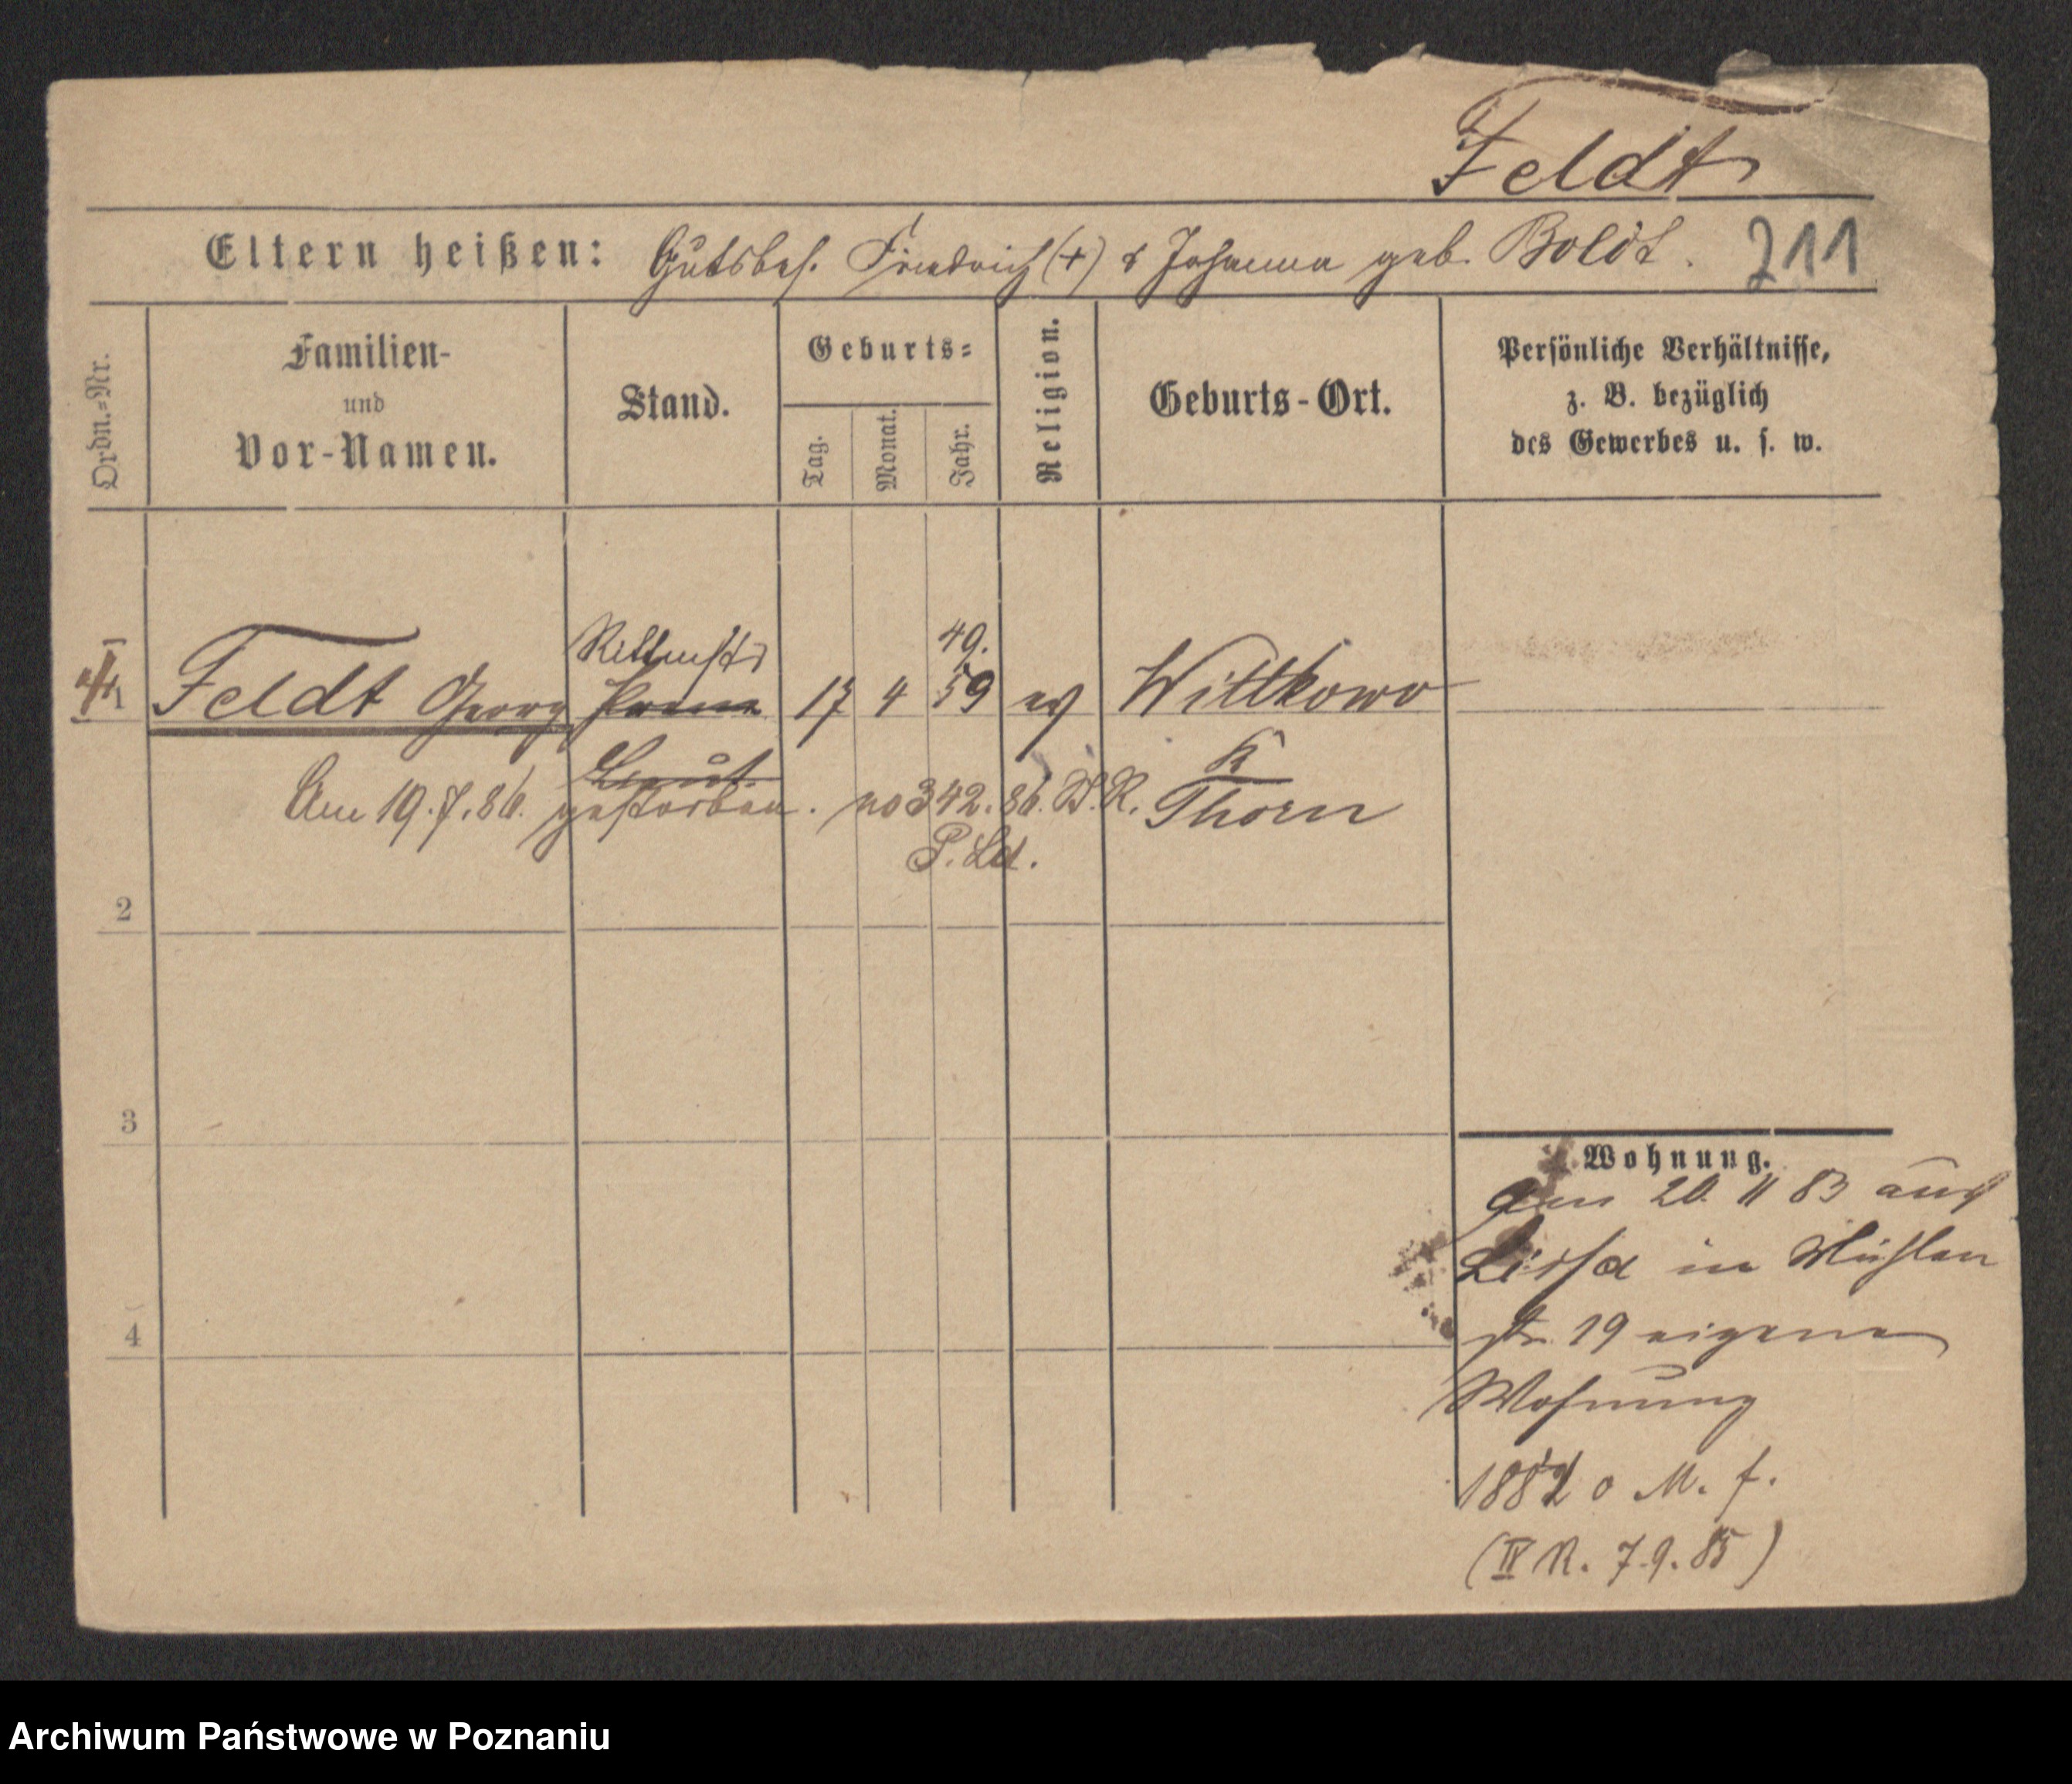 Feldt
Eltern heißen: Gutsbes. Friedrich (+) & Johanna geb. Boldt. 211
Ordn.-Nr.
Familien-
und
Vor-Namen.
Stand.
Geburts-
Tag.
Monat.
Jahr.
Religion.
Geburts-Ort.
Persönliche Verhältnisse,
z. B. bezüglich
des Gewerbes u. s. w.
Rittmstr
49.
1 Feldt Georg 17 4 59 ev Wittkowo
Lieut.
K
Am 19.7.86. gestorben. no 342.86. Thorn
2
3
4
Wohnung.
20. 11 83 aus
Lissa in Mühlen
str 19 eigene
Wohnung
1882 o M. f.
(IV R. 7.9.85)
Archiwum Państwowe w Poznaniu